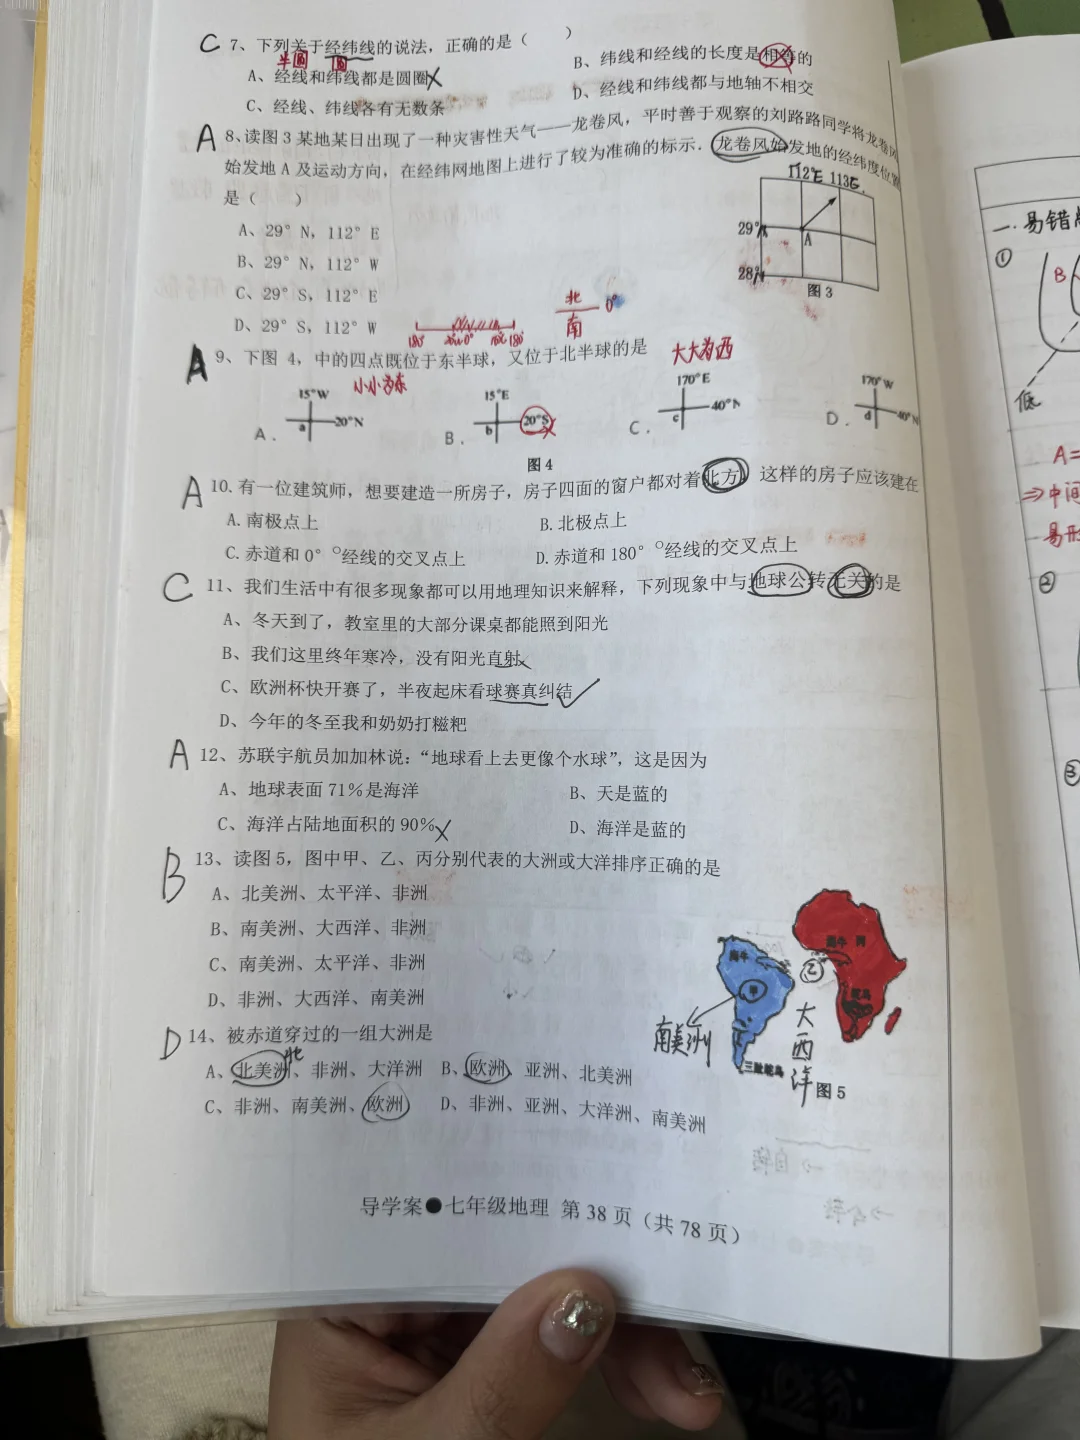 C 7、下列关于经纬线的说法，正确的是（ ）
半圆 圆
A、经线和纬线都是圆圈 B、纬线和经线的长度是相等的
C、经线、纬线各有无数条 D、经线和纬线都与地轴不相交
A 8、读图 3 某地某日出现了一种灾害性天气——龙卷风，平时善于观察的刘路路同学将龙卷风
始发地 A 及运动方向，在经纬网地图上进行了较为准确的标示．龙卷风始发地的经纬度位置
是（ ）
112°E 113°E
A、29° N，112° E
29°N
A
B、29° N，112° W
28°N
图 3
C、29° S，112° E
D、29° S，112° W
北 0°
南
180° 20°W 0° 160°E 180°
A 9、下图 4，中的四点既位于东半球，又位于北半球的是
大大为西
小小为东
A． 15°W 20°N a
B． 15°E 20°S b
C． 170°E 40°N c
D． 170°W 40°N d
图 4
A 10. 有一位建筑师，想要建造一所房子，房子四面的窗户都对着北方，这样的房子应该建在
A. 南极点上 B. 北极点上
C. 赤道和 0° 经线的交叉点上 D. 赤道和 180° 经线的交叉点上
C 11、我们生活中有很多现象都可以用地理知识来解释，下列现象中与地球公转无关的是
A、冬天到了，教室里的大部分课桌都能照到阳光
B、我们这里终年寒冷，没有阳光直射
C、欧洲杯快开赛了，半夜起床看球赛真纠结
D、今年的冬至我和奶奶打糍粑
A 12、苏联宇航员加加林说：“地球看上去更像个水球”，这是因为
A、地球表面 71%是海洋 B、天是蓝的
C、海洋占陆地面积的 90% D、海洋是蓝的
B 13、读图 5，图中甲、乙、丙分别代表的大洲或大洋排序正确的是
A、北美洲、太平洋、非洲
B、南美洲、大西洋、非洲
C、南美洲、太平洋、非洲
D、非洲、大西洋、南美洲
甲
乙
南美洲
大西洋
图 5
D 14、被赤道穿过的一组大洲是
北
A、北美洲、非洲、大洋洲 B、欧洲、亚洲、北美洲
C、非洲、南美洲、欧洲 D、非洲、亚洲、大洋洲、南美洲
导学案●七年级地理 第 38 页（共 78 页）
一. 易错
①
B
低
A=
⇒中间
易形
②
③